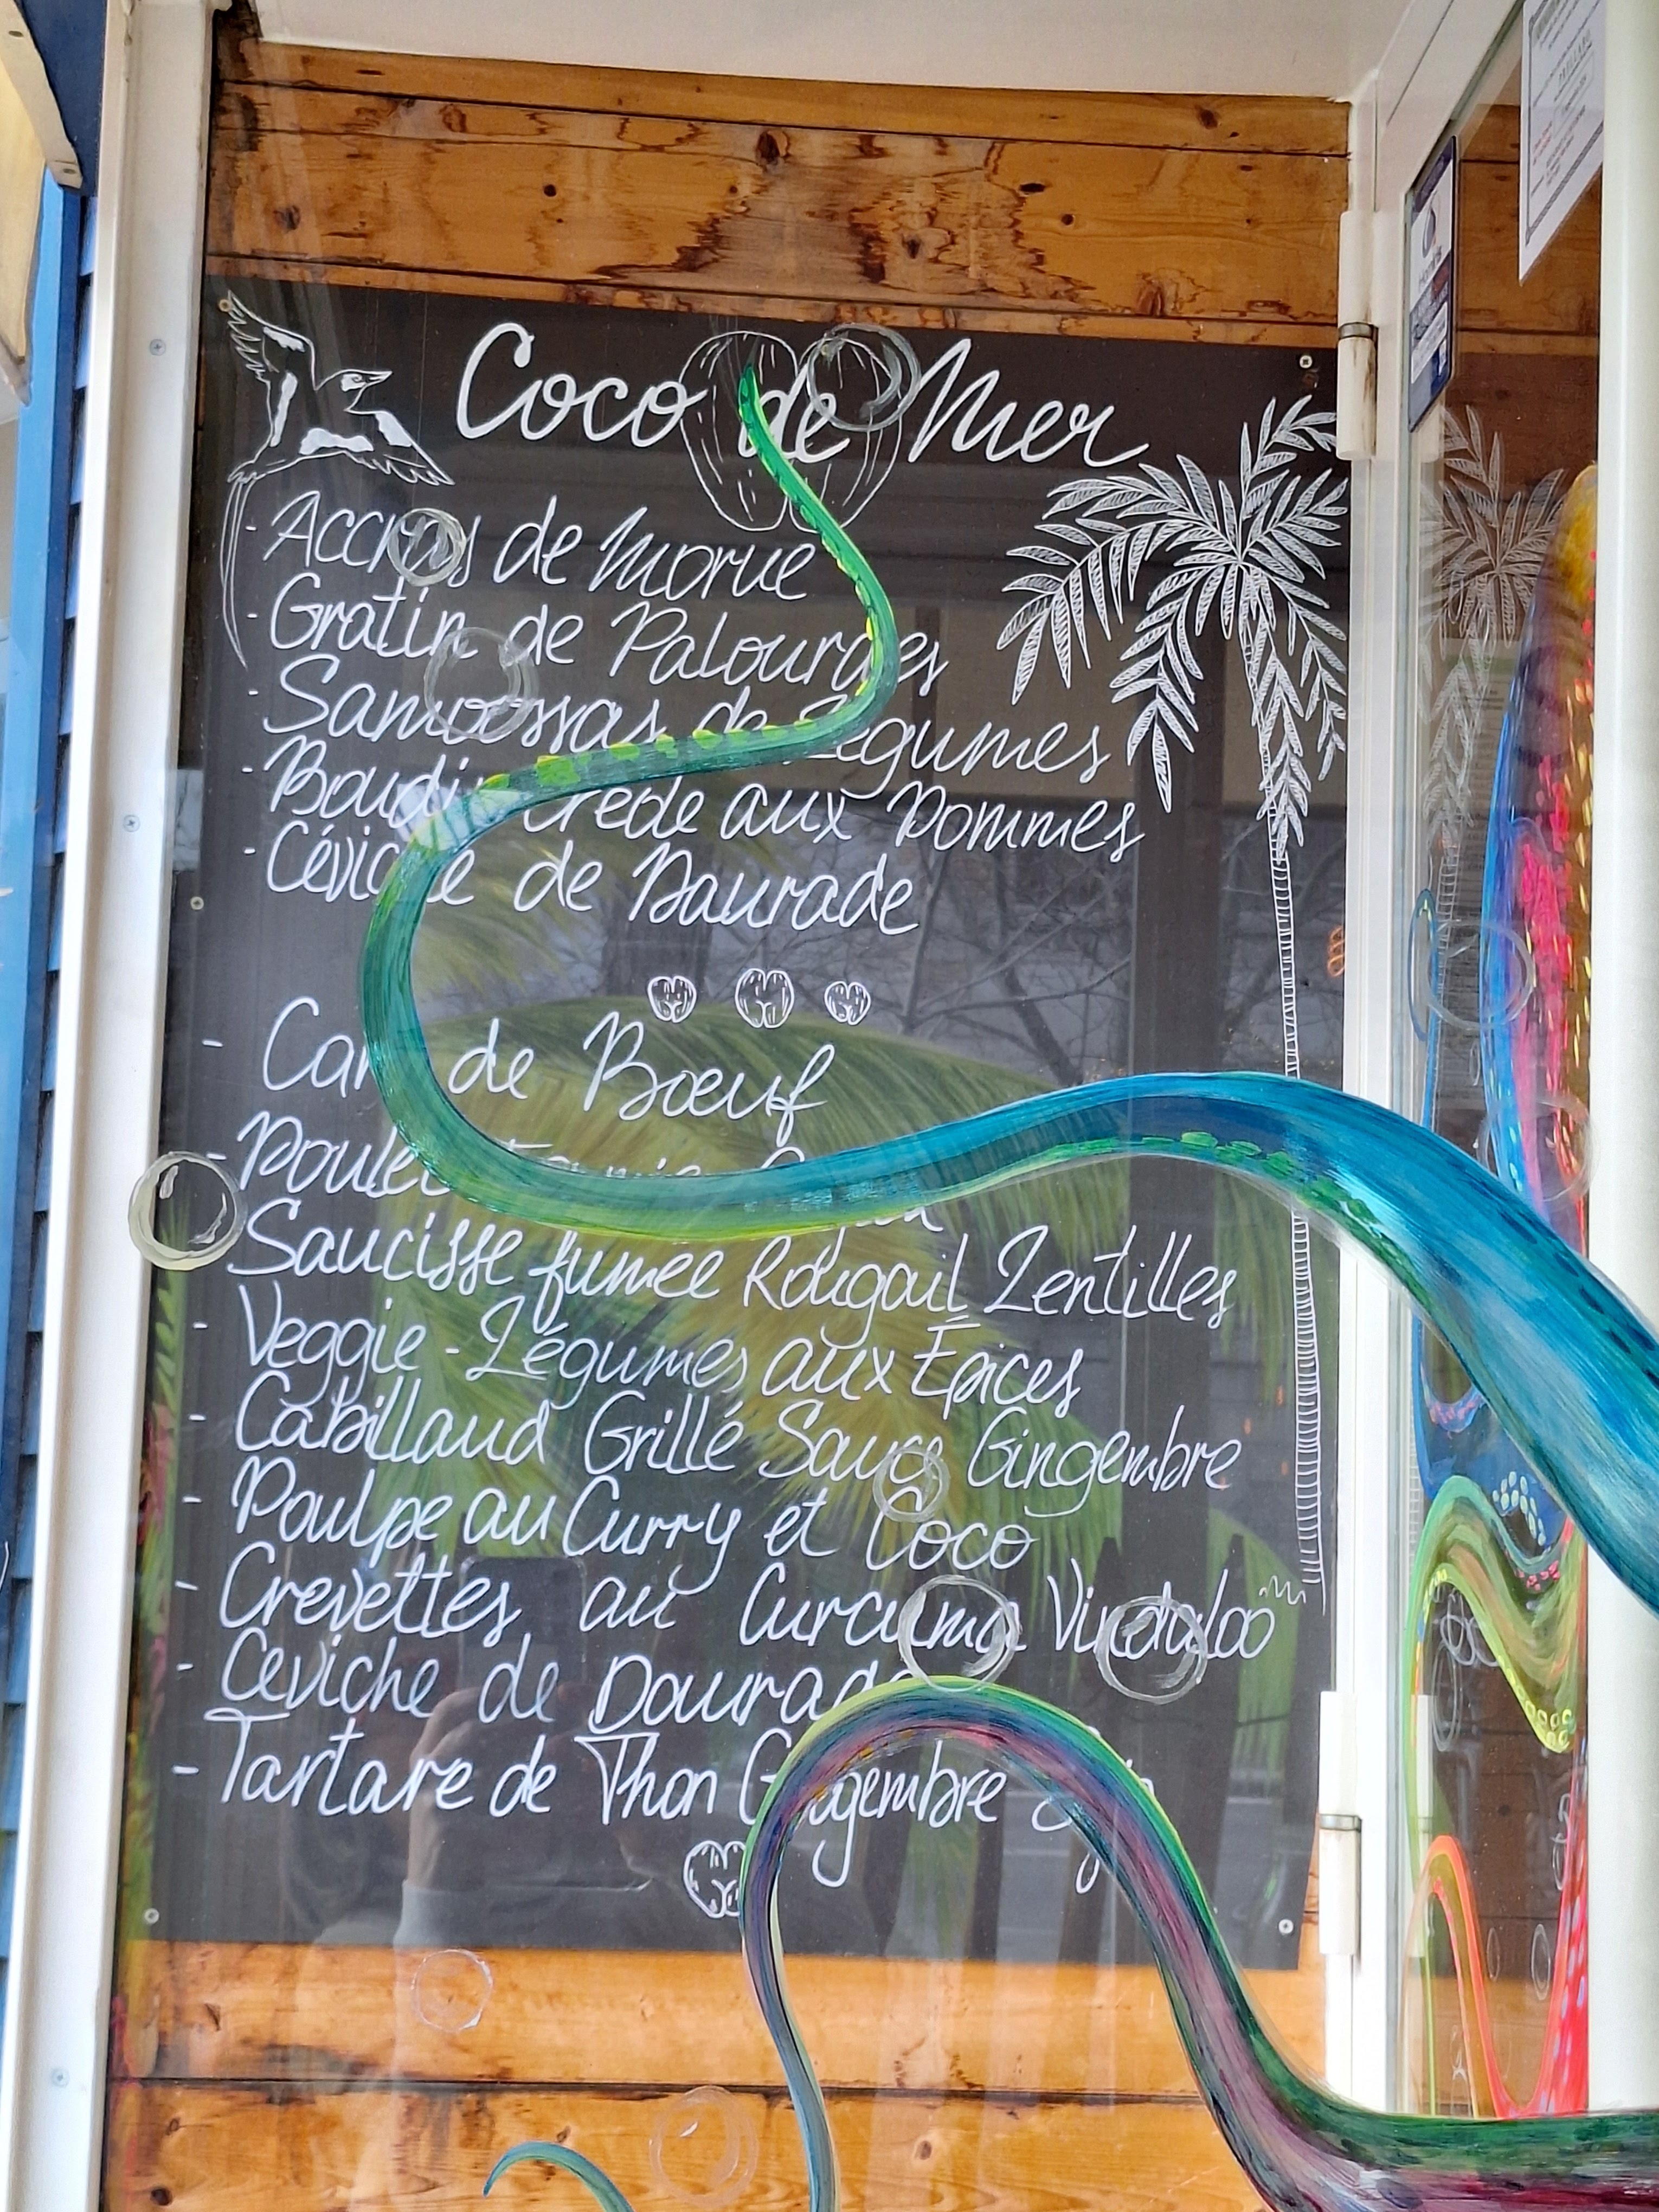 Coco de Mer
- Accras de Morue
- Gratin de Palourdes
- Samoossas de Légumes
- Boudin Créole aux Pommes
- Céviche de Daurade
- de Bœuf
- Poulet
Saucisse fumée Rougail Lentilles
- Veggie - Légumes aux Épices
- Cabillaud Grillé Sauce Gingembre
- Poulpe au Curry et Coco
- Crevettes au Curcuma Vindaloo
- Ceviche de Dourade
- Tartare de Thon Gingembre